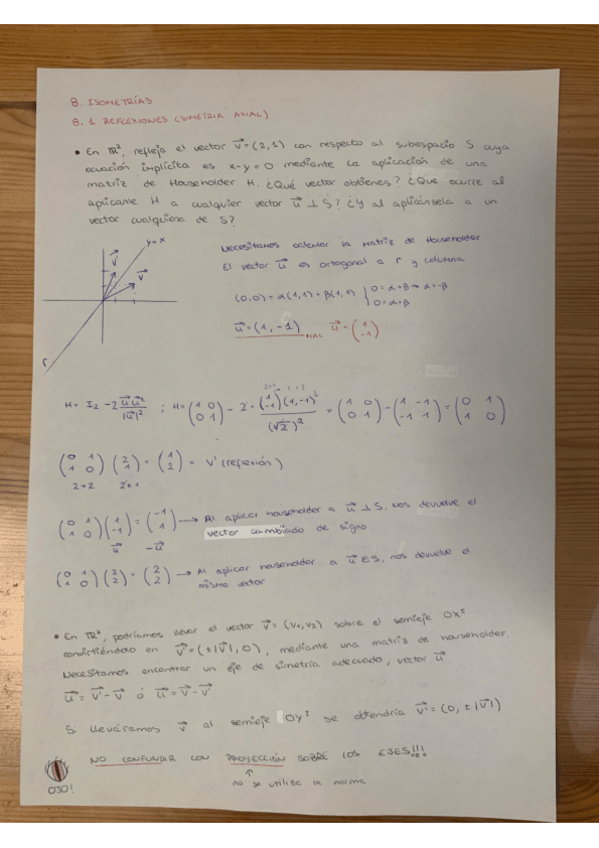 8. ISOMETRÍAS
8.1 REFLEXIONES (SIMETRÍA AXIAL)
• En ℝ², refleja el vector v⃗=(2,1) con respecto al subespacio S cuya
ecuación implícita es x-y=0 mediante la aplicación de una
matriz de Householder H. ¿Qué vector obtienes? ¿Que ocurre al
aplicarle H a cualquier vector u⃗ ⊥ S? ¿Y al aplicársela a un
vector cualquiera de S?
y=x
v⃗'
v⃗
r
Necesitamos calcular la matriz de Householder
El vector u⃗ es ortogonal a r y columna
(0,0) = α(1,1) + β(1,1) { 0=α+β → α=-β
0=α+β
u⃗=(1,-1) u⃗=(1 -1)
H = I₂ - 2 u⃗ u⃗ᵗ / |u⃗|² ; H = (1 0 0 1) - 2 · (1 -1)(1,-1) / (√2)² = (1 0 0 1) - (1 -1 -1 1) = (0 1 1 0)
(0 1 1 0) (2 1) = (1 2) = v' (reflexión)
2×2 2×1
(0 1 1 0) (1 -1) = (-1 1) → Al aplicar householder a u⃗ ⊥ S, nos devuelve el
u⃗ -u⃗ vector cambiado de signo
(0 1 1 0) (2 2) = (2 2) → Al aplicar householder a u⃗ ∈ S, nos devuelve el
mismo vector
• En ℝ², podríamos llevar el vector v⃗=(v₁,v₂) sobre el semieje OX
convirtiéndolo en v⃗'=(±|v⃗|,0), mediante una matriz de householder.
Necesitamos encontrar un eje de simetría adecuado, vector u⃗.
u⃗ = v⃗'-v⃗ ó u⃗ = v⃗-v⃗'
Si lleváramos v⃗ al semieje OY se obtendría v⃗'=(0,±|v⃗|)
NO CONFUNDIR CON PROYECCIÓN SOBRE LOS EJES!!!
OJO! no se utiliza la norma